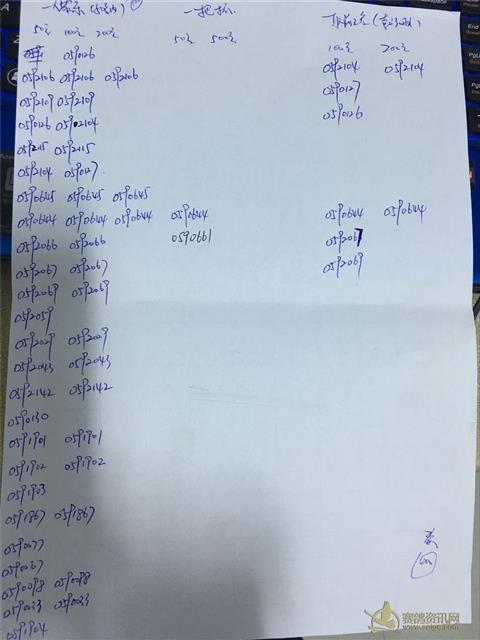 一把抓
50元 100元 200元 50元 500元 100元 200元
0590126 0592104 0592104
0592106 0592106 0592106 0590127
0592109 0592109 0590126
0590126 0592104
0592115 0592115
0592104 0590127
0590645 0590645 0590645
0590644 0590644 0590644 0590644 0590644 0590644
0592066 0592066 0590661 0592067
0592067 0592067 0592069
0592069 0592069
0592059
0592029 0592029
0592043 0592043
0592142 0592142
0590130
0591901 0591901
0591902 0591902
0591903
0591867 0591867
0590077
0590067
0590098 0590098
0590033 0590033
0591904
赛鸽资讯网